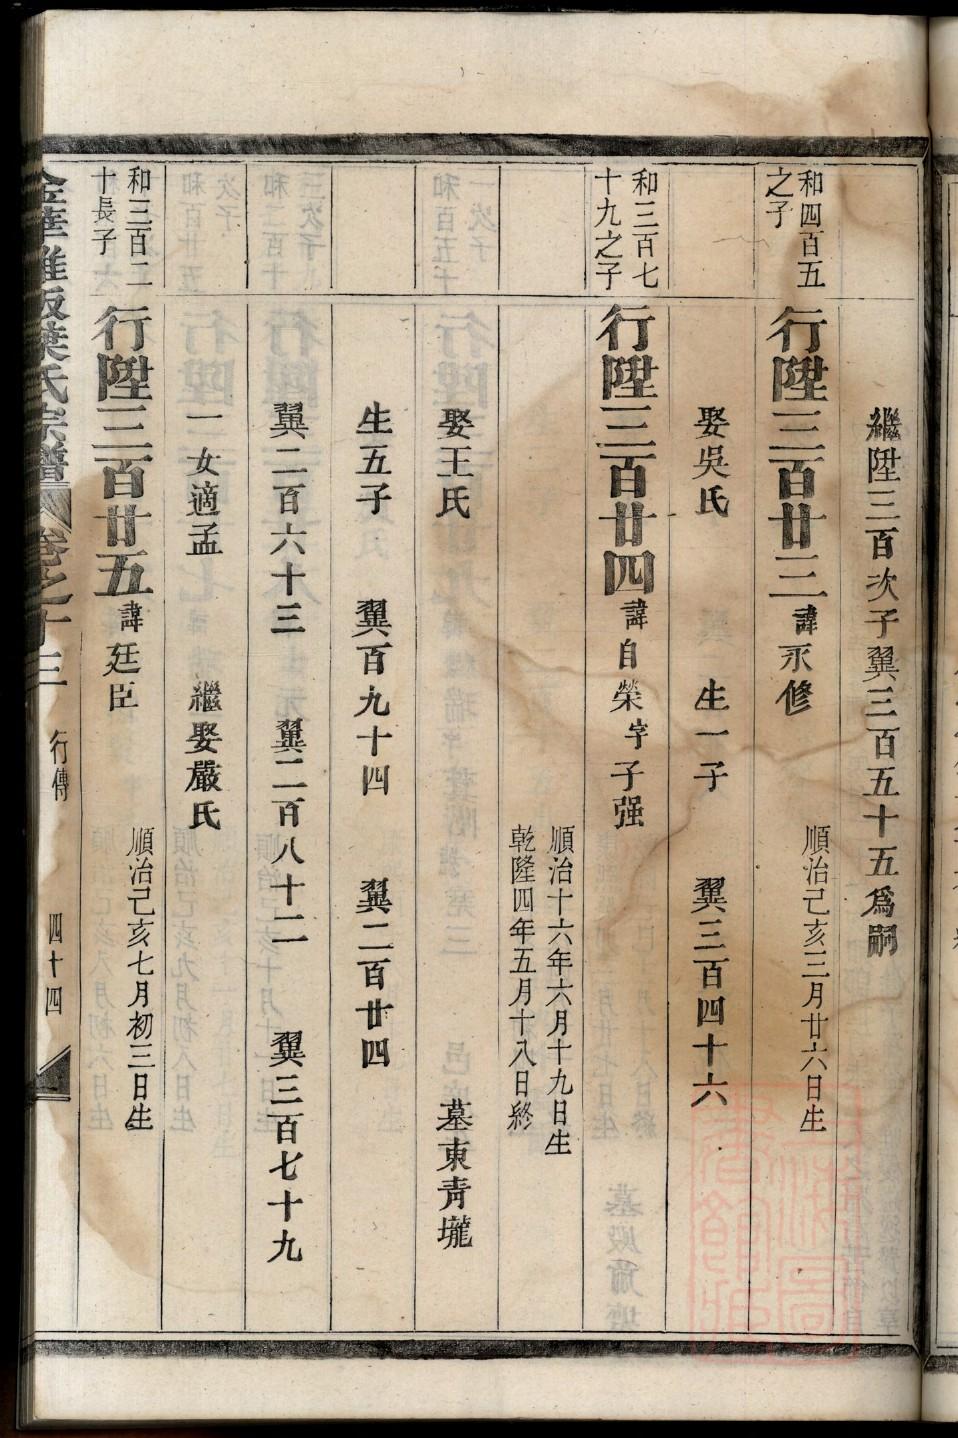 繼陞三百次子翼三百五十五爲嗣
和四百五
之子
行陞三百廿三 諱永修 順治己亥三月廿六日生
娶吳氏 生一子 翼三百四十六
和三百七
十九之子
行陞三百廿四 諱自榮 字子强
順治十六年六月十九日生
乾隆四年五月十八日終
娶王氏 墓東青壠
生五子 翼百九十四 翼二百廿四
翼二百六十三 翼二百八十二 翼三百七十九
一女適孟 繼娶嚴氏
和三百二
十長子
行陞三百廿五 諱廷臣 順治己亥七月初三日生
金華 葉氏宗譜 卷之十三 行傳 四十四